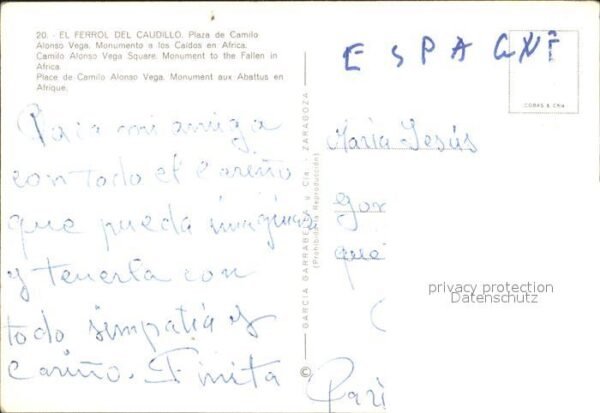 20. - EL FERROL DEL CAUDILLO. Plaza de Camilo
Alonso Vega. Monumento a los Caídos en Africa.
Camilo Alonso Vega Square. Monument to the Fallen in
Africa.
Place de Camilo Alonso Vega. Monument aux Abattus en
Afrique.
Para mi amiga
con todo el cariño
que pueda imaginar
y tenerla con
todo simpatía y
cariño. Finita
GARCIA GARRABELLA y Cía. - ZARAGOZA
(Prohibida la Reproducción)
©
ESPAGNE
COBAS & CRIA
María Jesús
privacy protection
Datenschutz